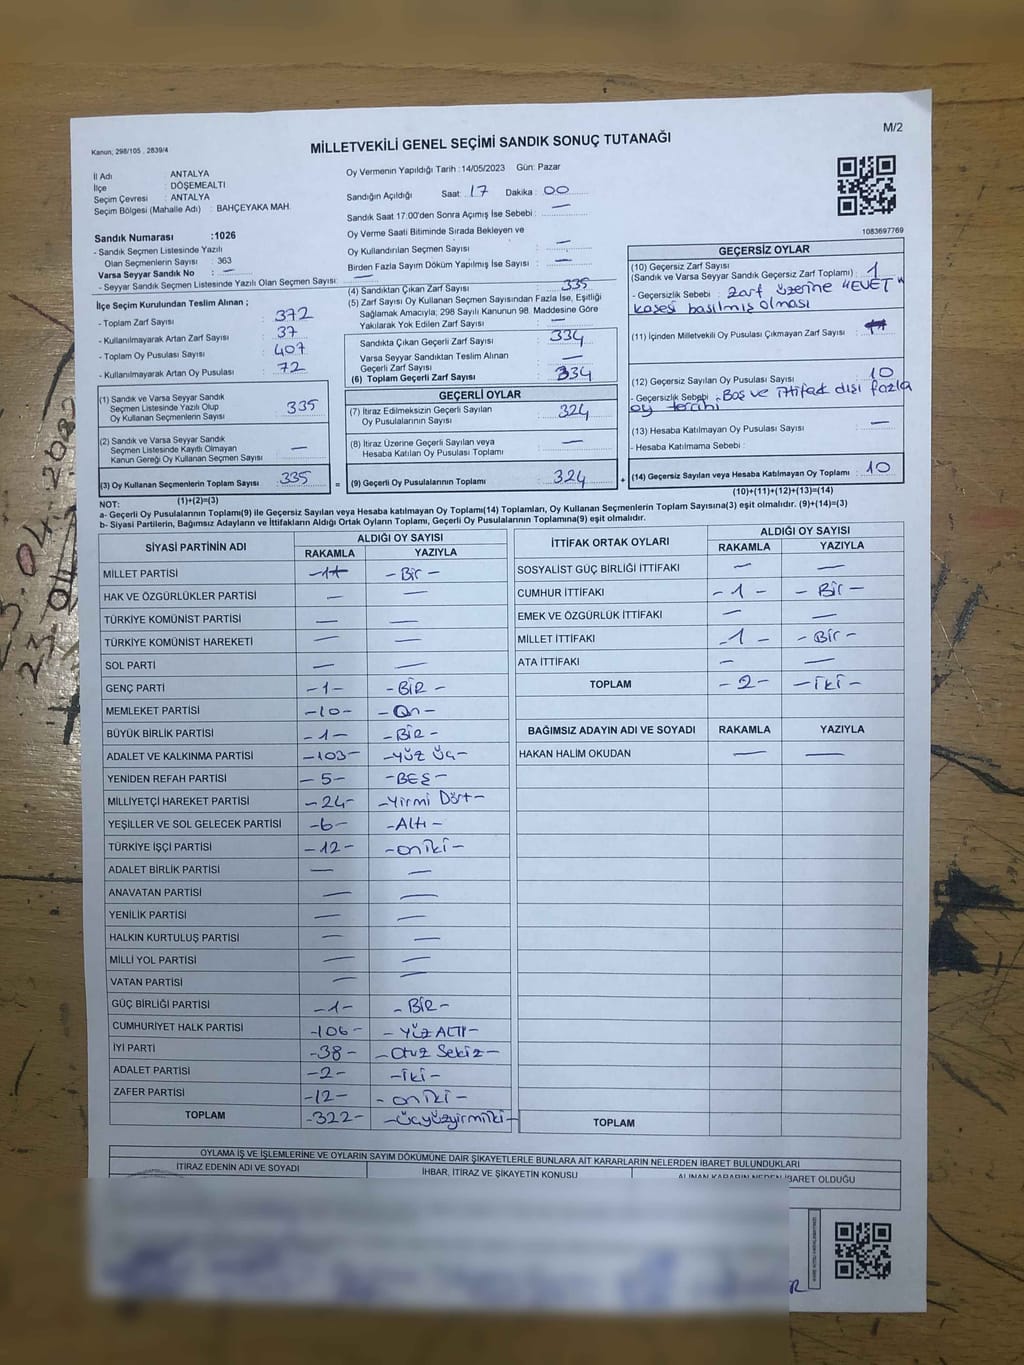 M/2
Kanun, 298/105 , 2839/4
MİLLETVEKİLİ GENEL SEÇİMİ SANDIK SONUÇ TUTANAĞI
İl Adı : ANTALYA
İlçe : DÖŞEMEALTI
Seçim Çevresi : ANTALYA
Seçim Bölgesi (Mahalle Adı) : BAHÇEYAKA MAH.
Sandık Numarası :1026
- Sandık Seçmen Listesinde Yazılı
Olan Seçmenlerin Sayısı : 363
Varsa Seyyar Sandık No : —
- Seyyar Sandık Seçmen Listesinde Yazılı Olan Seçmen Sayısı: —
Oy Vermenin Yapıldığı Tarih : 14/05/2023 Gün: Pazar
Sandığın Açıldığı Saat: 17 Dakika : 00
Sandık Saat 17:00'den Sonra Açımış İse Sebebi : —
Oy Verme Saati Bitiminde Sırada Bekleyen ve
Oy Kullandırılan Seçmen Sayısı : —
Birden Fazla Sayım Döküm Yapılmış İse Sayısı : —
1083697769
İlçe Seçim Kurulundan Teslim Alınan ;
- Toplam Zarf Sayısı : 372
- Kullanılmayarak Artan Zarf Sayısı : 37
- Toplam Oy Pusulası Sayısı : 407
- Kullanılmayarak Artan Oy Pusulası : 72
(1) Sandık ve Varsa Seyyar Sandık
Seçmen Listesinde Yazılı Olup
Oy Kullanan Seçmenlerin Sayısı : 335
(2) Sandık ve Varsa Seyyar Sandık
Seçmen Listesinde Kayıtlı Olmayan
Kanun Gereği Oy Kullanan Seçmen Sayısı : —
(3) Oy Kullanan Seçmenlerin Toplam Sayısı : 335
(1)+(2)=(3)
(4) Sandıktan Çıkan Zarf Sayısı : 335
(5) Zarf Sayısı Oy Kullanan Seçmen Sayısından Fazla İse, Eşitliği
Sağlamak Amacıyla; 298 Sayılı Kanunun 98. Maddesine Göre
Yakılarak Yok Edilen Zarf Sayısı : —
Sandıkta Çıkan Geçerli Zarf Sayısı : 334
Varsa Seyyar Sandıktan Teslim Alınan
Geçerli Zarf Sayısı : —
(6) Toplam Geçerli Zarf Sayısı : 334
GEÇERLİ OYLAR
(7) İtiraz Edilmeksizin Geçerli Sayılan
Oy Pusulalarının Sayısı : 324
(8) İtiraz Üzerine Geçerli Sayılan veya
Hesaba Katılan Oy Pusulası Toplamı : —
= (9) Geçerli Oy Pusulalarının Toplamı : 324
GEÇERSİZ OYLAR
(10) Geçersiz Zarf Sayısı
(Sandık ve Varsa Seyyar Sandık Geçersiz Zarf Toplamı) : 1
- Geçersizlik Sebebi : Zarf üzerine "EVET"
kaşesi basılmış olması
(11) İçinden Milletvekili Oy Pusulası Çıkmayan Zarf Sayısı :
(12) Geçersiz Sayılan Oy Pusulası Sayısı : 10
- Geçersizlik Sebebi : Boş ve ittifak dışı fazla
oy tercihi
(13) Hesaba Katılmayan Oy Pusulası Sayısı : —
- Hesaba Katılmama Sebebi :
+ (14) Geçersiz Sayılan veya Hesaba Katılmayan Oy Toplamı : 10
(10)+(11)+(12)+(13)=(14)
NOT:
a- Geçerli Oy Pusulalarının Toplamı(9) ile Geçersiz Sayılan veya Hesaba Katılmayan Oy Toplamı(14) Toplamları, Oy Kullanan Seçmenlerin Toplam Sayısına(3) eşit olmalıdır. (9)+(14)=(3)
b- Siyasi Partilerin, Bağımsız Adayların ve İttifakların Aldığı Ortak Oyların Toplamı, Geçerli Oy Pusulalarının Toplamına(9) eşit olmalıdır.
SİYASİ PARTİNİN ADI ALDIĞI OY SAYISI
RAKAMLA YAZIYLA
MİLLET PARTİSİ -Bir-
HAK VE ÖZGÜRLÜKLER PARTİSİ — —
TÜRKİYE KOMÜNİST PARTİSİ — —
TÜRKİYE KOMÜNİST HAREKETİ — —
SOL PARTİ — —
GENÇ PARTİ -1- -BİR-
MEMLEKET PARTİSİ -10- -On-
BÜYÜK BİRLİK PARTİSİ -1- -BİR-
ADALET VE KALKINMA PARTİSİ -103- -YÜZ ÜÇ-
YENİDEN REFAH PARTİSİ -5- -BEŞ-
MİLLİYETÇİ HAREKET PARTİSİ -24- -Yirmi Dört-
YEŞİLLER VE SOL GELECEK PARTİSİ -6- -Altı-
TÜRKİYE İŞÇİ PARTİSİ -12- -oniki-
ADALET BİRLİK PARTİSİ — —
ANAVATAN PARTİSİ — —
YENİLİK PARTİSİ — —
HALKIN KURTULUŞ PARTİSİ — —
MİLLİ YOL PARTİSİ — —
VATAN PARTİSİ — —
GÜÇ BİRLİĞİ PARTİSİ -1- -BİR-
CUMHURİYET HALK PARTİSİ -106- -YÜZ ALTI-
İYİ PARTİ -38- -Otuz Sekiz-
ADALET PARTİSİ -2- -iki-
ZAFER PARTİSİ -12- -oniki-
TOPLAM -322- -üçyüzyirmiiki-
İTTİFAK ORTAK OYLARI ALDIĞI OY SAYISI
RAKAMLA YAZIYLA
SOSYALIST GÜÇ BİRLİĞİ İTTİFAKI — —
CUMHUR İTTİFAKI -1- -Bir-
EMEK VE ÖZGÜRLÜK İTTİFAKI — —
MİLLET İTTİFAKI -1- -Bir-
ATA İTTİFAKI — —
TOPLAM -2- -iki-
BAĞIMSIZ ADAYIN ADI VE SOYADI RAKAMLA YAZIYLA
HAKAN HALİM OKUDAN — —
TOPLAM
OYLAMA İŞ VE İŞLEMLERİNE VE OYLARIN SAYIM DÖKÜMÜNE DAİR ŞİKAYETLERLE BUNLARA AİT KARARLARIN NELERDEN İBARET BULUNDUKLARI
İTİRAZ EDENİN ADI VE SOYADI İHBAR, İTİRAZ VE ŞİKAYETİN KONUSU ALINAN KARARIN NEDEN İBARET OLDUĞU